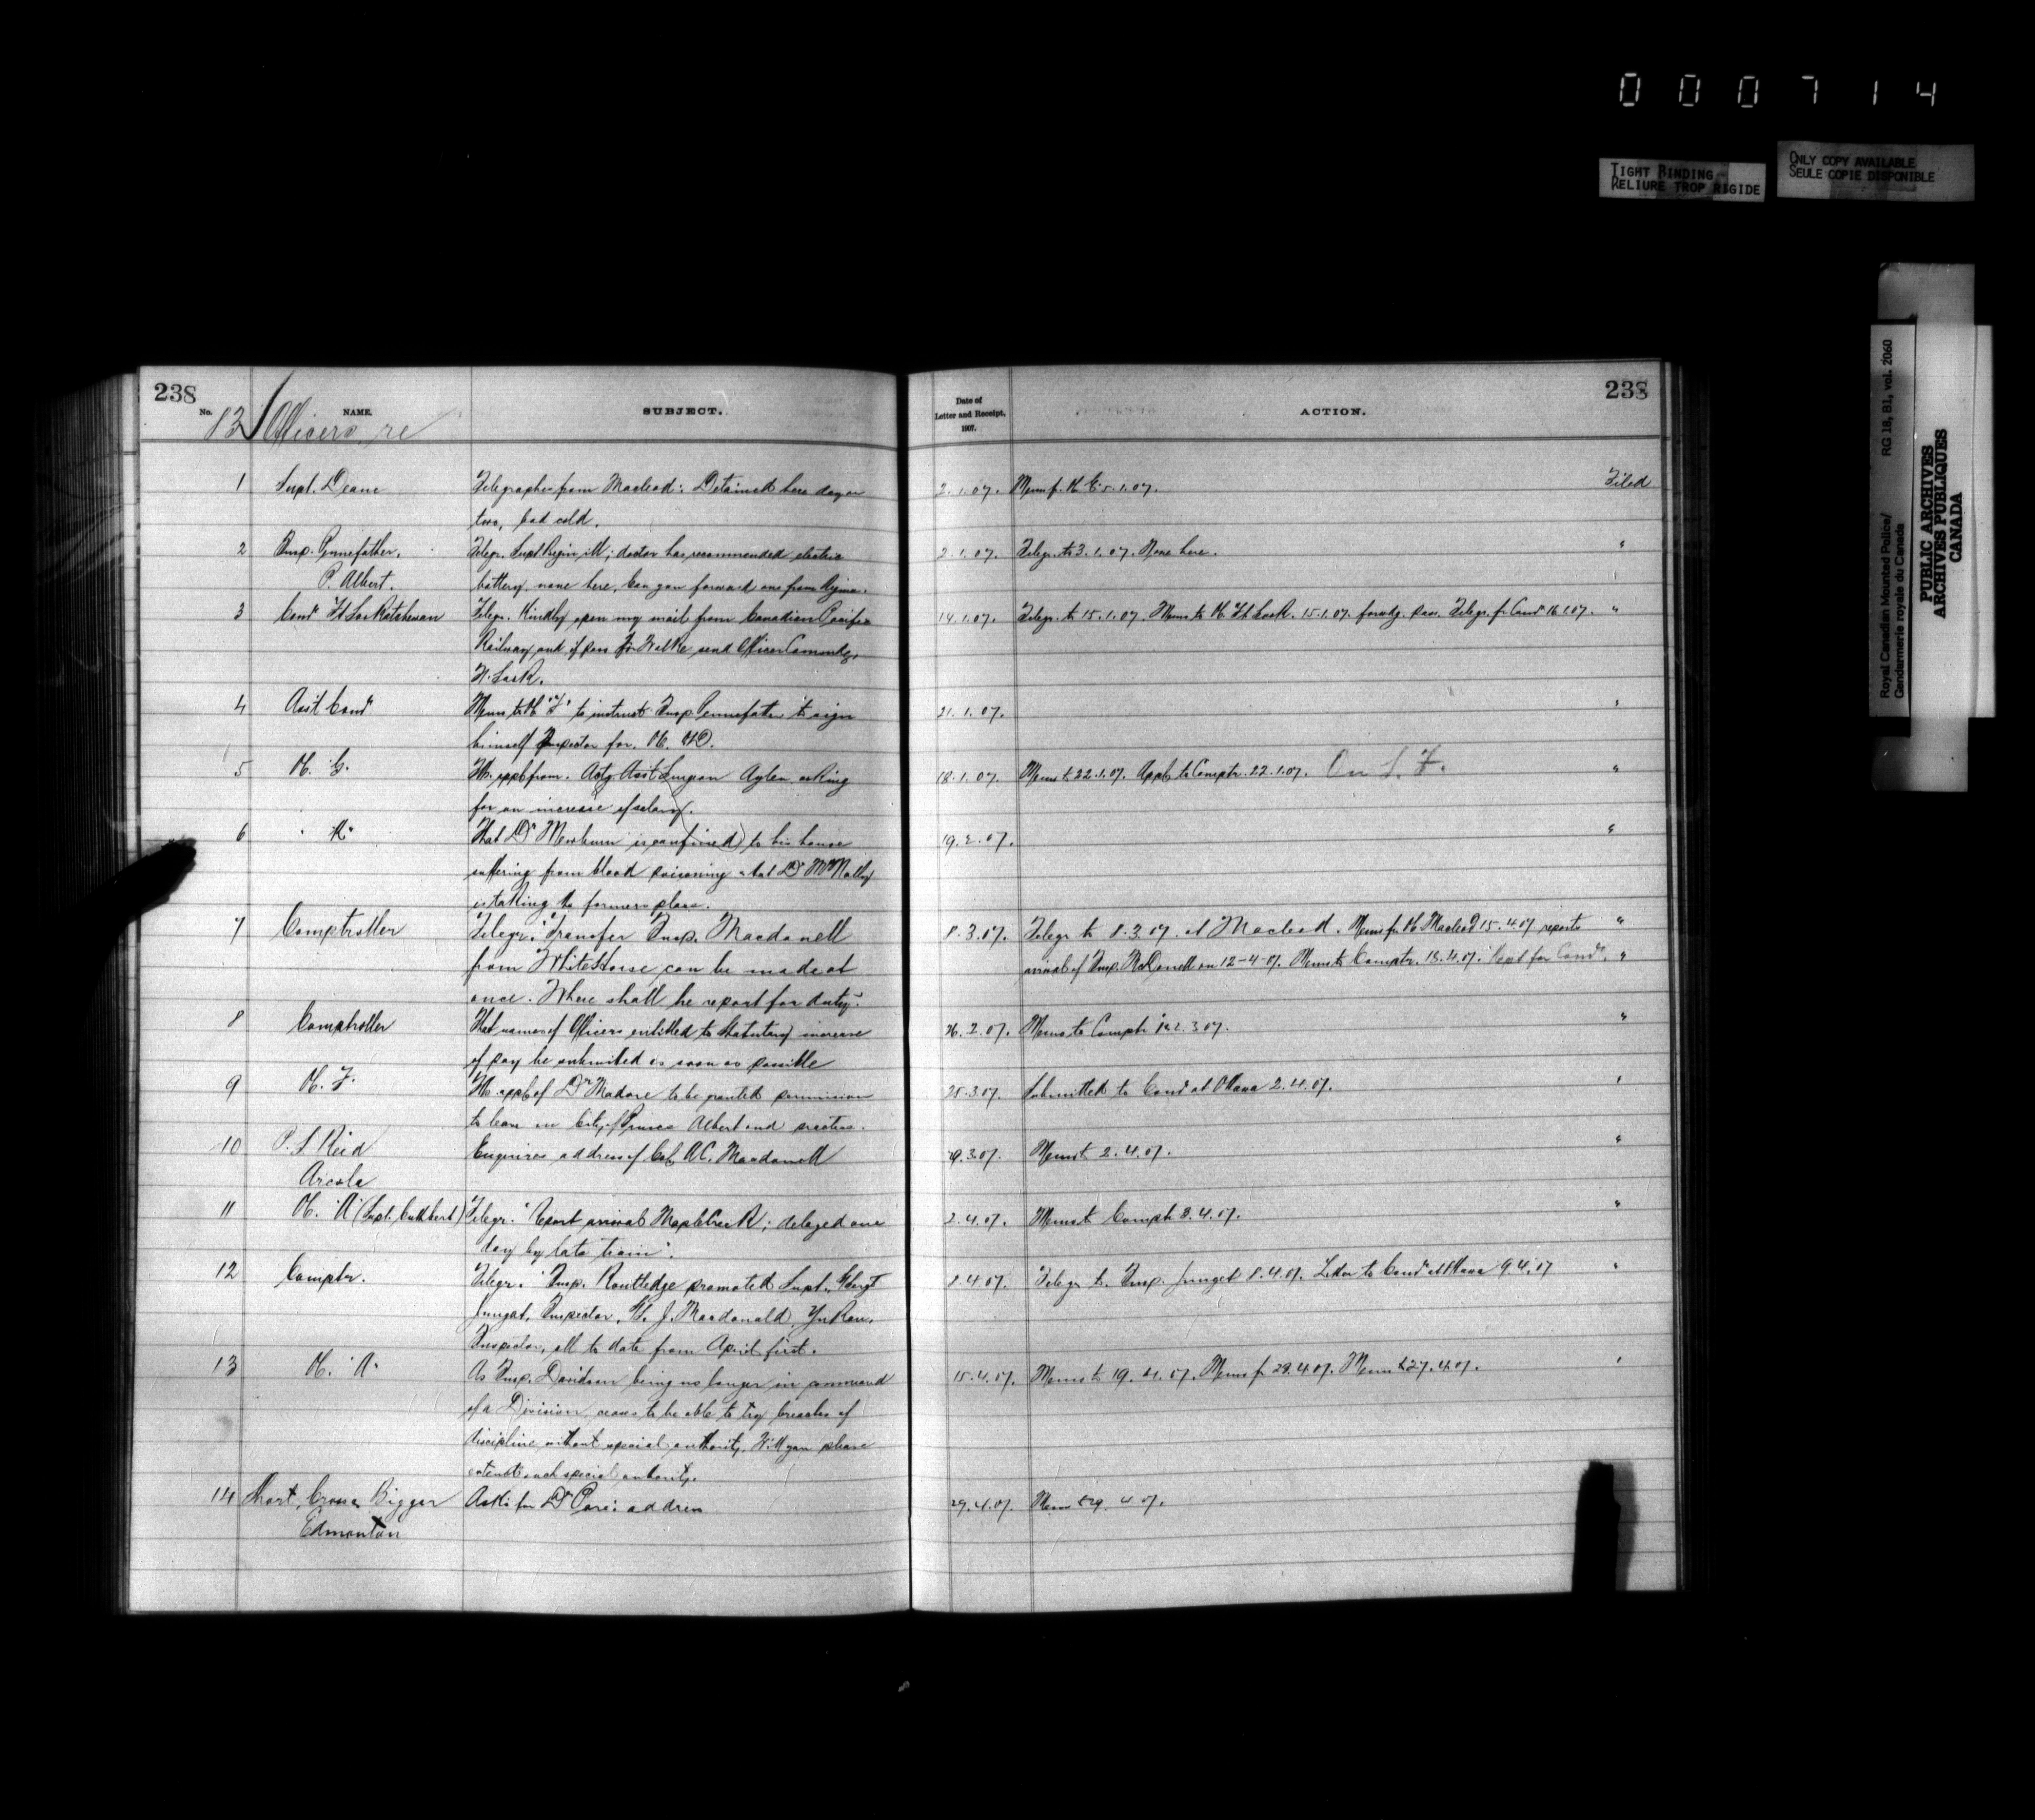 000714
TIGHT BINDING
RELIURE TROP RIGIDE
ONLY COPY AVAILABLE
SEULE COPIE DISPONIBLE
Royal Canadian Mounted Police/
Gendarmerie royale du Canada
RG 18, B1, vol. 2060
PUBLIC ARCHIVES
ARCHIVES PUBLIQUES
CANADA
238
238
No. NAME. SUBJECT. Date of Letter and Receipt, 1907. ACTION.
132 Officers re
1 Supt. Deane Telegraphs from Macleod: Detained here day or 2.1.07. Memo f. 5.1.07. Filed
two, bad cold.
2 Insp. Gennefather, Telegr. Supt Begin ill; doctor has recommended electric 2.1.07. Telegr. to 3.1.07. None here. "
P. Albert. battery, none here, Can you forward one from Regina.
3 Comr Ft Saskatchewan Telegr. Kindly open my mail from Canadian Pacific 14.1.07. Telegr. to 15.1.07. Memo to Ft Sask. 15.1.07. forwdg. pass. Telegr. f. Comr 16.1.07. "
Railway and if pass for Wilkie send Officer Commdg.
Ft. Sask.
4 Asst Comr Memo to "F" to instruct Insp. Gennefather to sign 21.1.07. "
himself Inspector for.
5 G. appl. from Actg Asst Surgeon Aylen asking 18.1.07. Memo to 22.1.07. Appl. to Comptr. 22.1.07. On "
for an increase of salary.
6 "K" That Dr Mewburn is confined to his house 19.2.07. "
suffering from blood poisoning & that Dr McNally
is taking the formers place.
7 Comptroller Telegr. "Transfer Insp. Macdonell 8.3.07. Telegr to 8.3.07. at Macleod. Memo fr. Macleod 15.4.07 reports "
from White Horse can be made at arrival of Insp. McDonell on 12-4-07. Memo to Comptr. 18.4.07. Kept for Comr. "
once. Where shall he report for duty".
8 Comptroller That names of Officers entitled to Statutory increase 26.2.07. Memo to Comptr 3.07. "
of pay be submitted as soon as possible
9 F. appl. of Dr Madore to be granted permission 25.3.07. Submitted to Comr at Ottawa 2.4.07. "
to live in City of Prince Albert and practice.
10 P. S. Reid Enquires address of A.C. Macdonell 29.3.07. Memo to 2.4.07. "
Arcola
11 "A" (Supt. Cuthbert) Telegr. "Report arrival Maple Creek; delayed one 2.4.07. Memo to Comptr 3.4.07. "
day by late train".
12 Comptr. Telegr. "Insp. Routledge promoted Supt., Junget, 8.4.07. Telegr to Insp. Junget 8.4.07. Letter to Comr at Ottawa 9.4.07 "
Inspector, J. Macdonald, Yukon,
Inspector, all to date from April first.
13 "A" As Insp. Davidson being no longer in command 15.4.07. Memo to 19.4.07. Memo f. 23.4.07. Memo to 27.4.07. "
of a Division, ceases to be able to try breaches of
discipline without special authority. Will you please
extend such special authority.
14 Short, Cross, Biggar Asks for Dr Paré's address 29.4.07. Memo to 29.4.07.
Edmonton